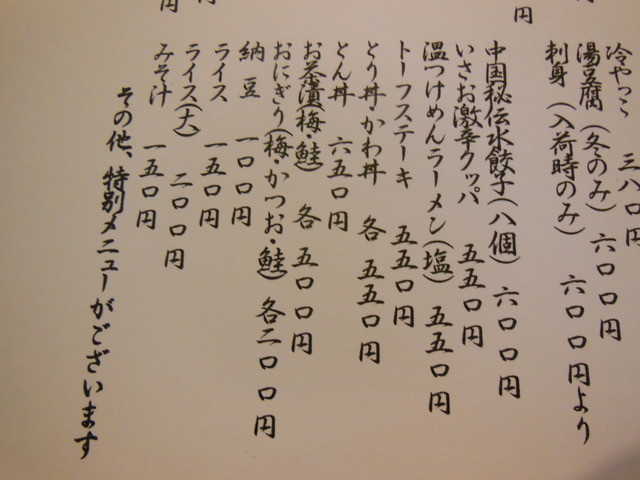 円
冷やっこ 三八〇円
湯豆腐(冬のみ) 六〇〇円
刺身(入荷時のみ) 六〇〇円より
中国秘伝水餃子(八個) 六〇〇円
いさお激辛クッパ 五五〇円
温つけめんラーメン(塩) 五五〇円
トーフステーキ 五五〇円
とり丼・かわ丼 各 五五〇円
とん丼 六五〇円
お茶漬(梅・鮭) 各 五〇〇円
おにぎり(梅・かつお・鮭) 各二〇〇円
納豆 一〇〇円
ライス 一五〇円
ライス(大) 二〇〇円
みそ汁 一五〇円
その他、特別メニューがございます